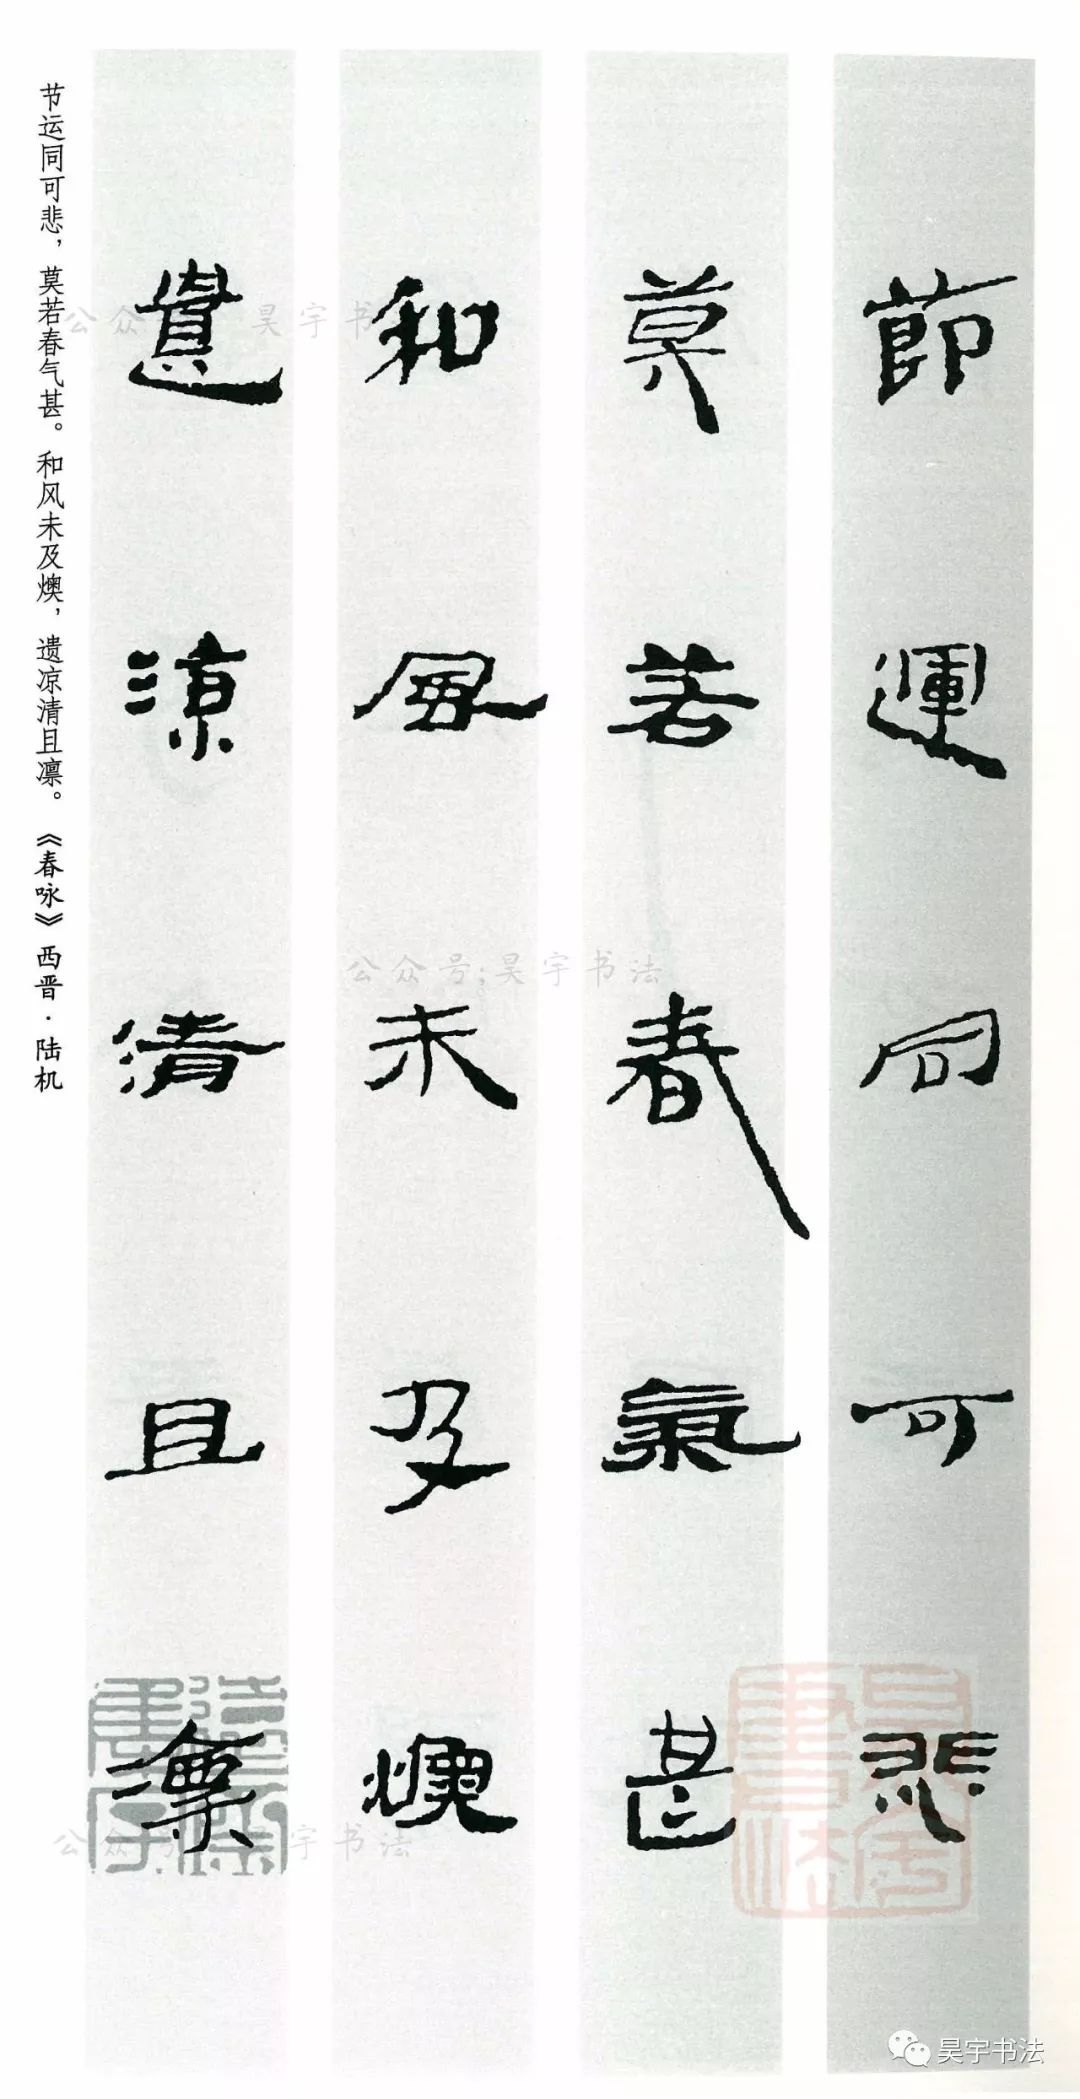 節運同可悲
莫若春氣甚
和風未及燠
遺涼清且凛
节运同可悲，莫若春气甚。和风未及燠，遗凉清且凛。《春咏》西晋·陆机
公众 昊宇书
公众号:昊宇书法
公众 昊宇书法
昊宇书法
昊宇书法